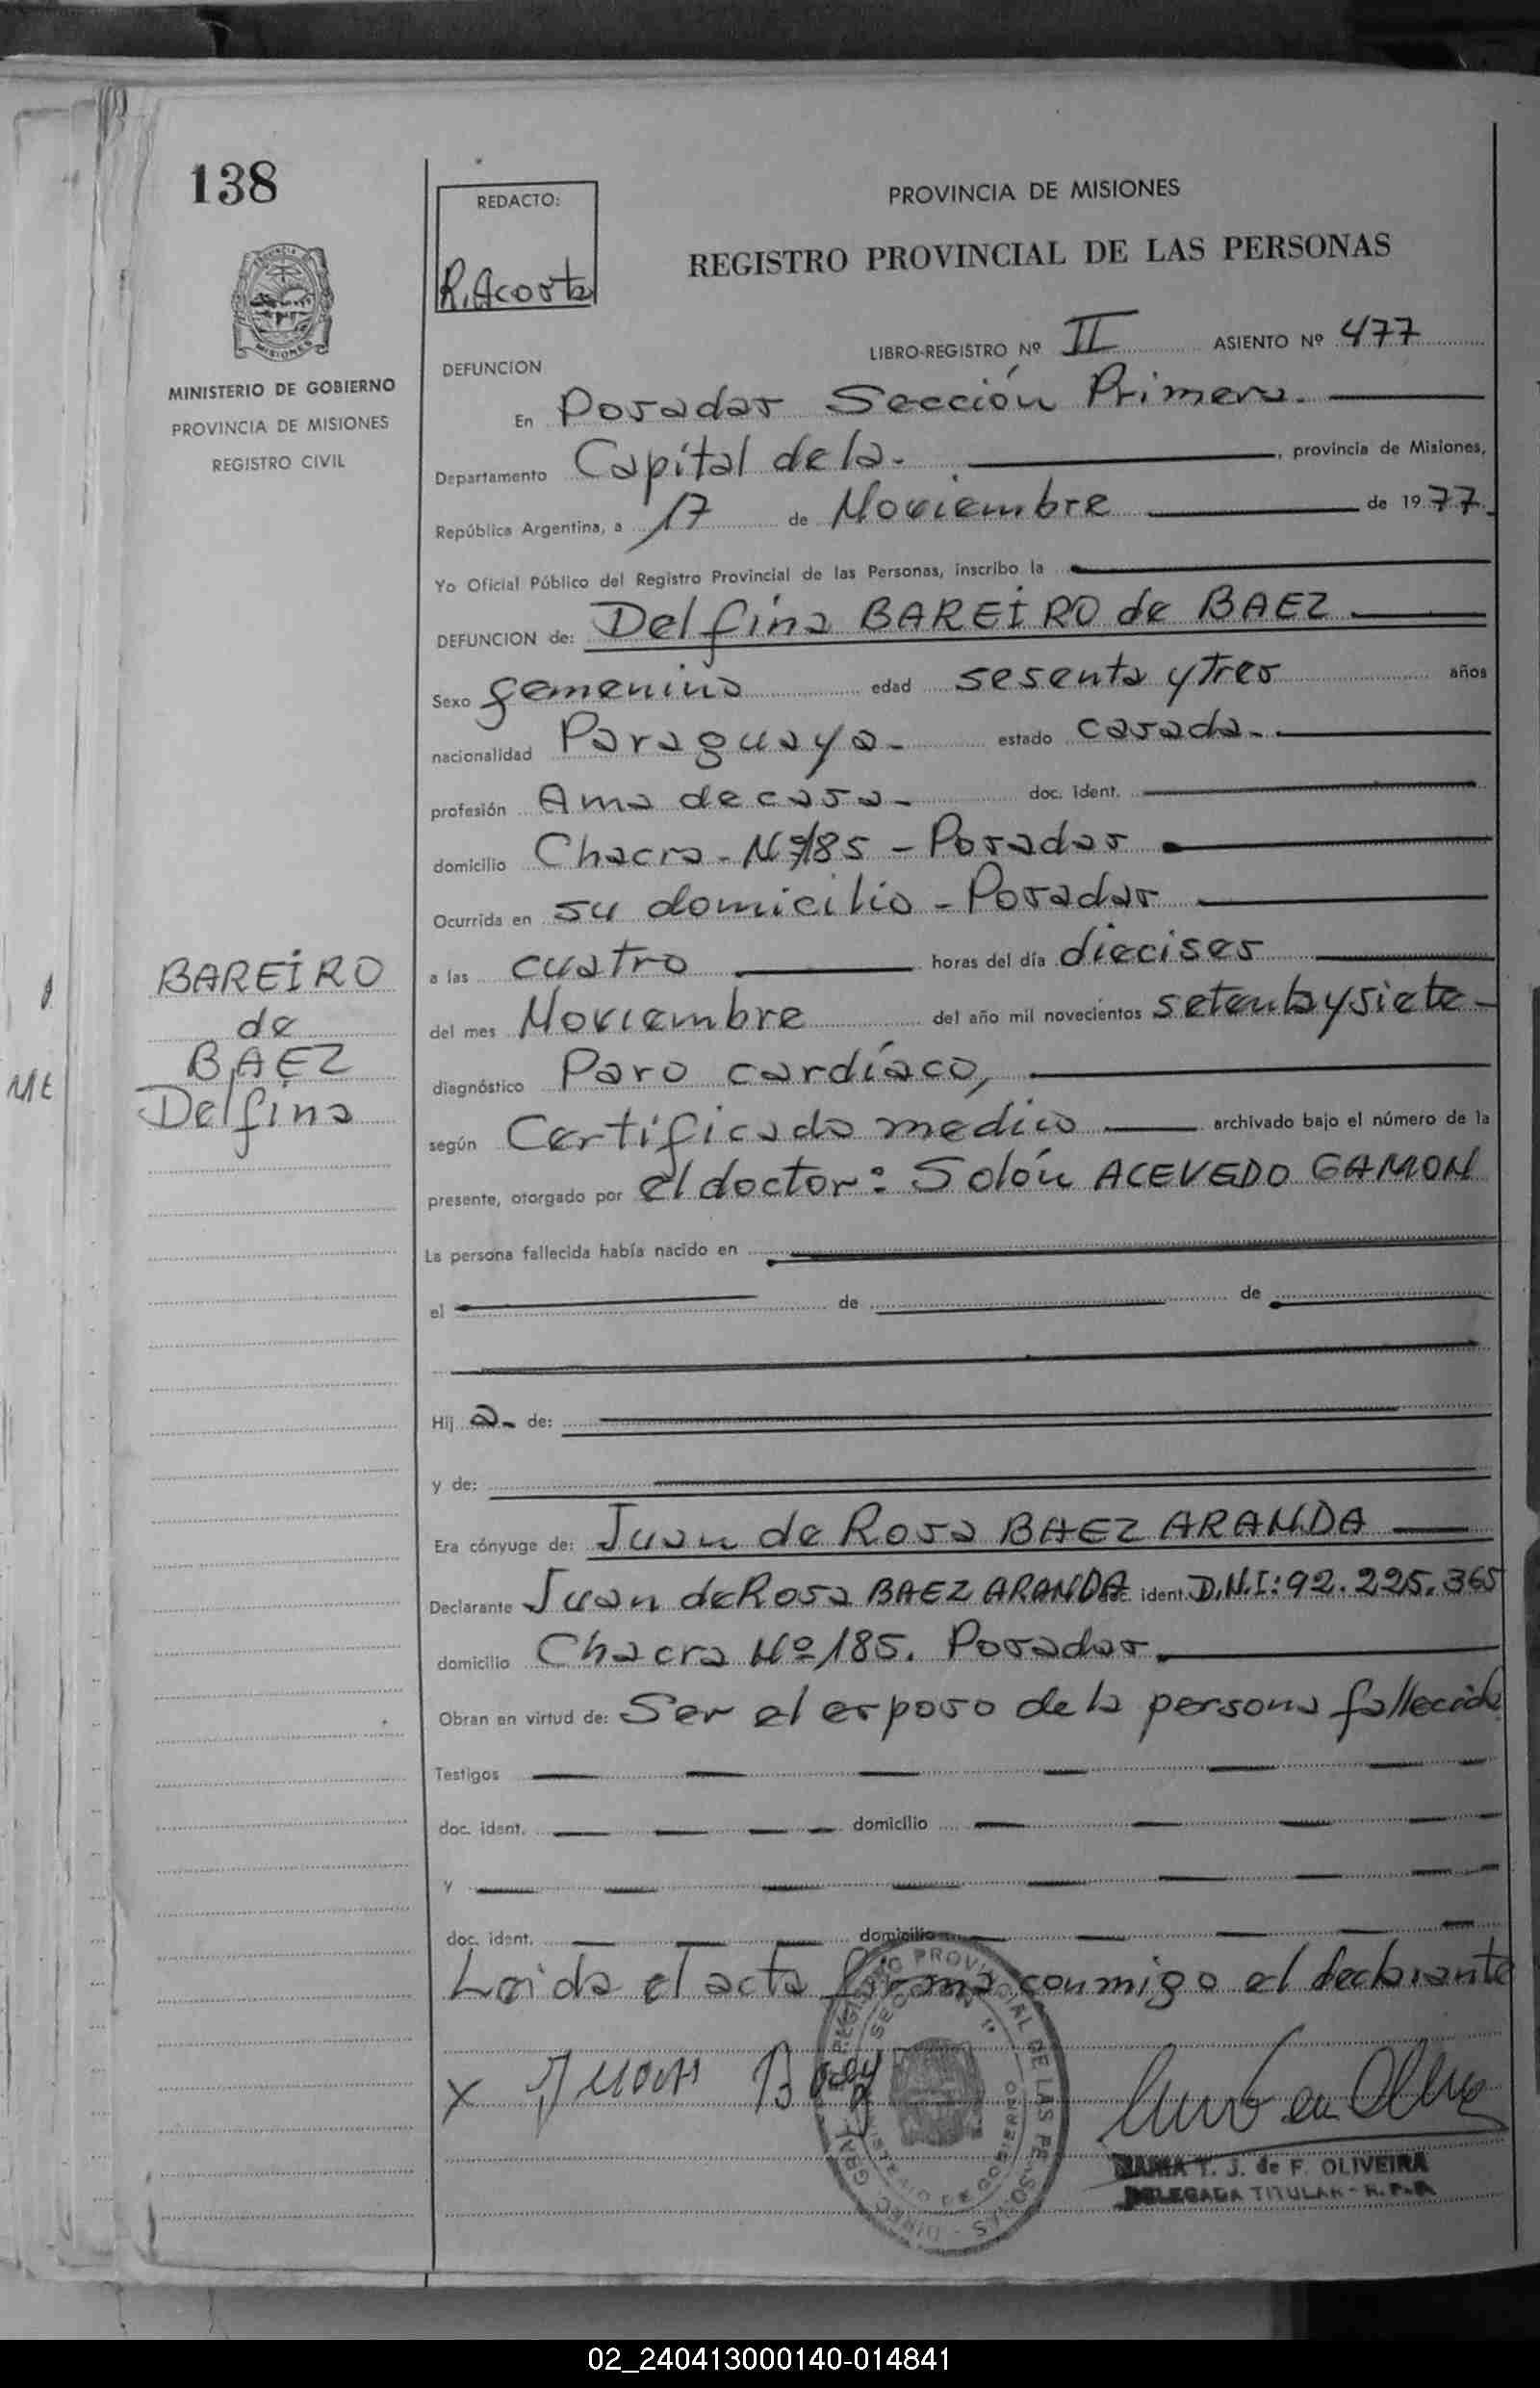 138
REDACTO:
R. Acosta
PROVINCIA DE MISIONES
REGISTRO PROVINCIAL DE LAS PERSONAS
MISIONES
MINISTERIO DE GOBIERNO
PROVINCIA DE MISIONES
REGISTRO CIVIL
LIBRO-REGISTRO Nº II ASIENTO Nº 477
DEFUNCION
En Posadas Sección Primera.
Departamento Capital de la. , provincia de Misiones,
República Argentina, a 17 de Noviembre de 1977.
Yo Oficial Público del Registro Provincial de las Personas, inscribo la
DEFUNCION de: Delfina BAREIRO de BAEZ
Sexo femenino edad sesenta y tres años
nacionalidad Paraguaya - estado casada.
profesión Ama de casa - doc. ident.
domicilio Chacra - Nº 185 - Posadas
Ocurrida en su domicilio - Posadas
a las cuatro horas del día dieciseis
del mes Noviembre del año mil novecientos setenta y siete -
diagnóstico Paro cardíaco,
según Certificado medico archivado bajo el número de la
presente, otorgado por el doctor: Solón ACEVEDO GAMON
La persona fallecida había nacido en
el de de
Hij a- de:
y de:
Era cónyuge de: Juan de Rosa BAEZ ARANDA
Declarante Juan de Rosa BAEZ ARANDA doc. ident. D.N.I: 92.225.365
domicilio Chacra Nº 185. Posadas.
Obran en virtud de: Ser el esposo de la persona fallecida
Testigos
doc. ident. domicilio
y
doc. ident. domicilio
Leida el acta firma conmigo el declarante
x Juan Baez
T. J. de F. OLIVEIRA
DELEGADA TITULAR - R. P. P.
BAREIRO
de
BAEZ
Delfina
02_240413000140-014841